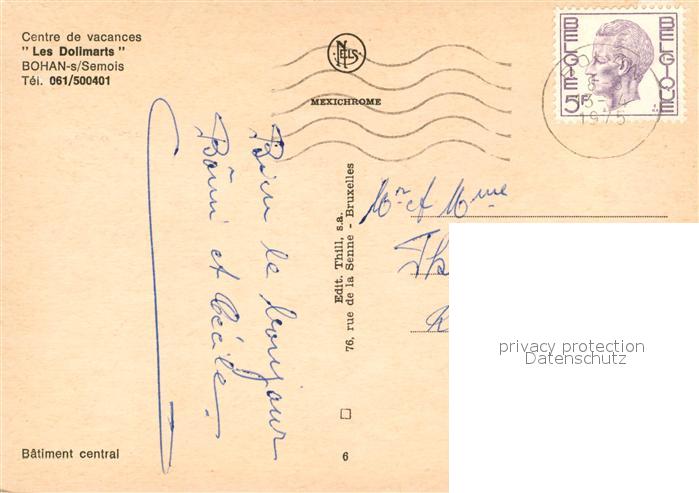 Centre de vacances
"Les Dolimarts"
BOHAN-s/Semois
Tél. 061/500401
NELS
MEXICHROME
BELGIE 5F BELGIQUE
1975
Bien le bonjour
Bonni et Cécile.
Mr et Mme
Edit. Thill, s.a.
76, rue de la Senne - Bruxelles
privacy protection
Datenschutz
Bâtiment central
6